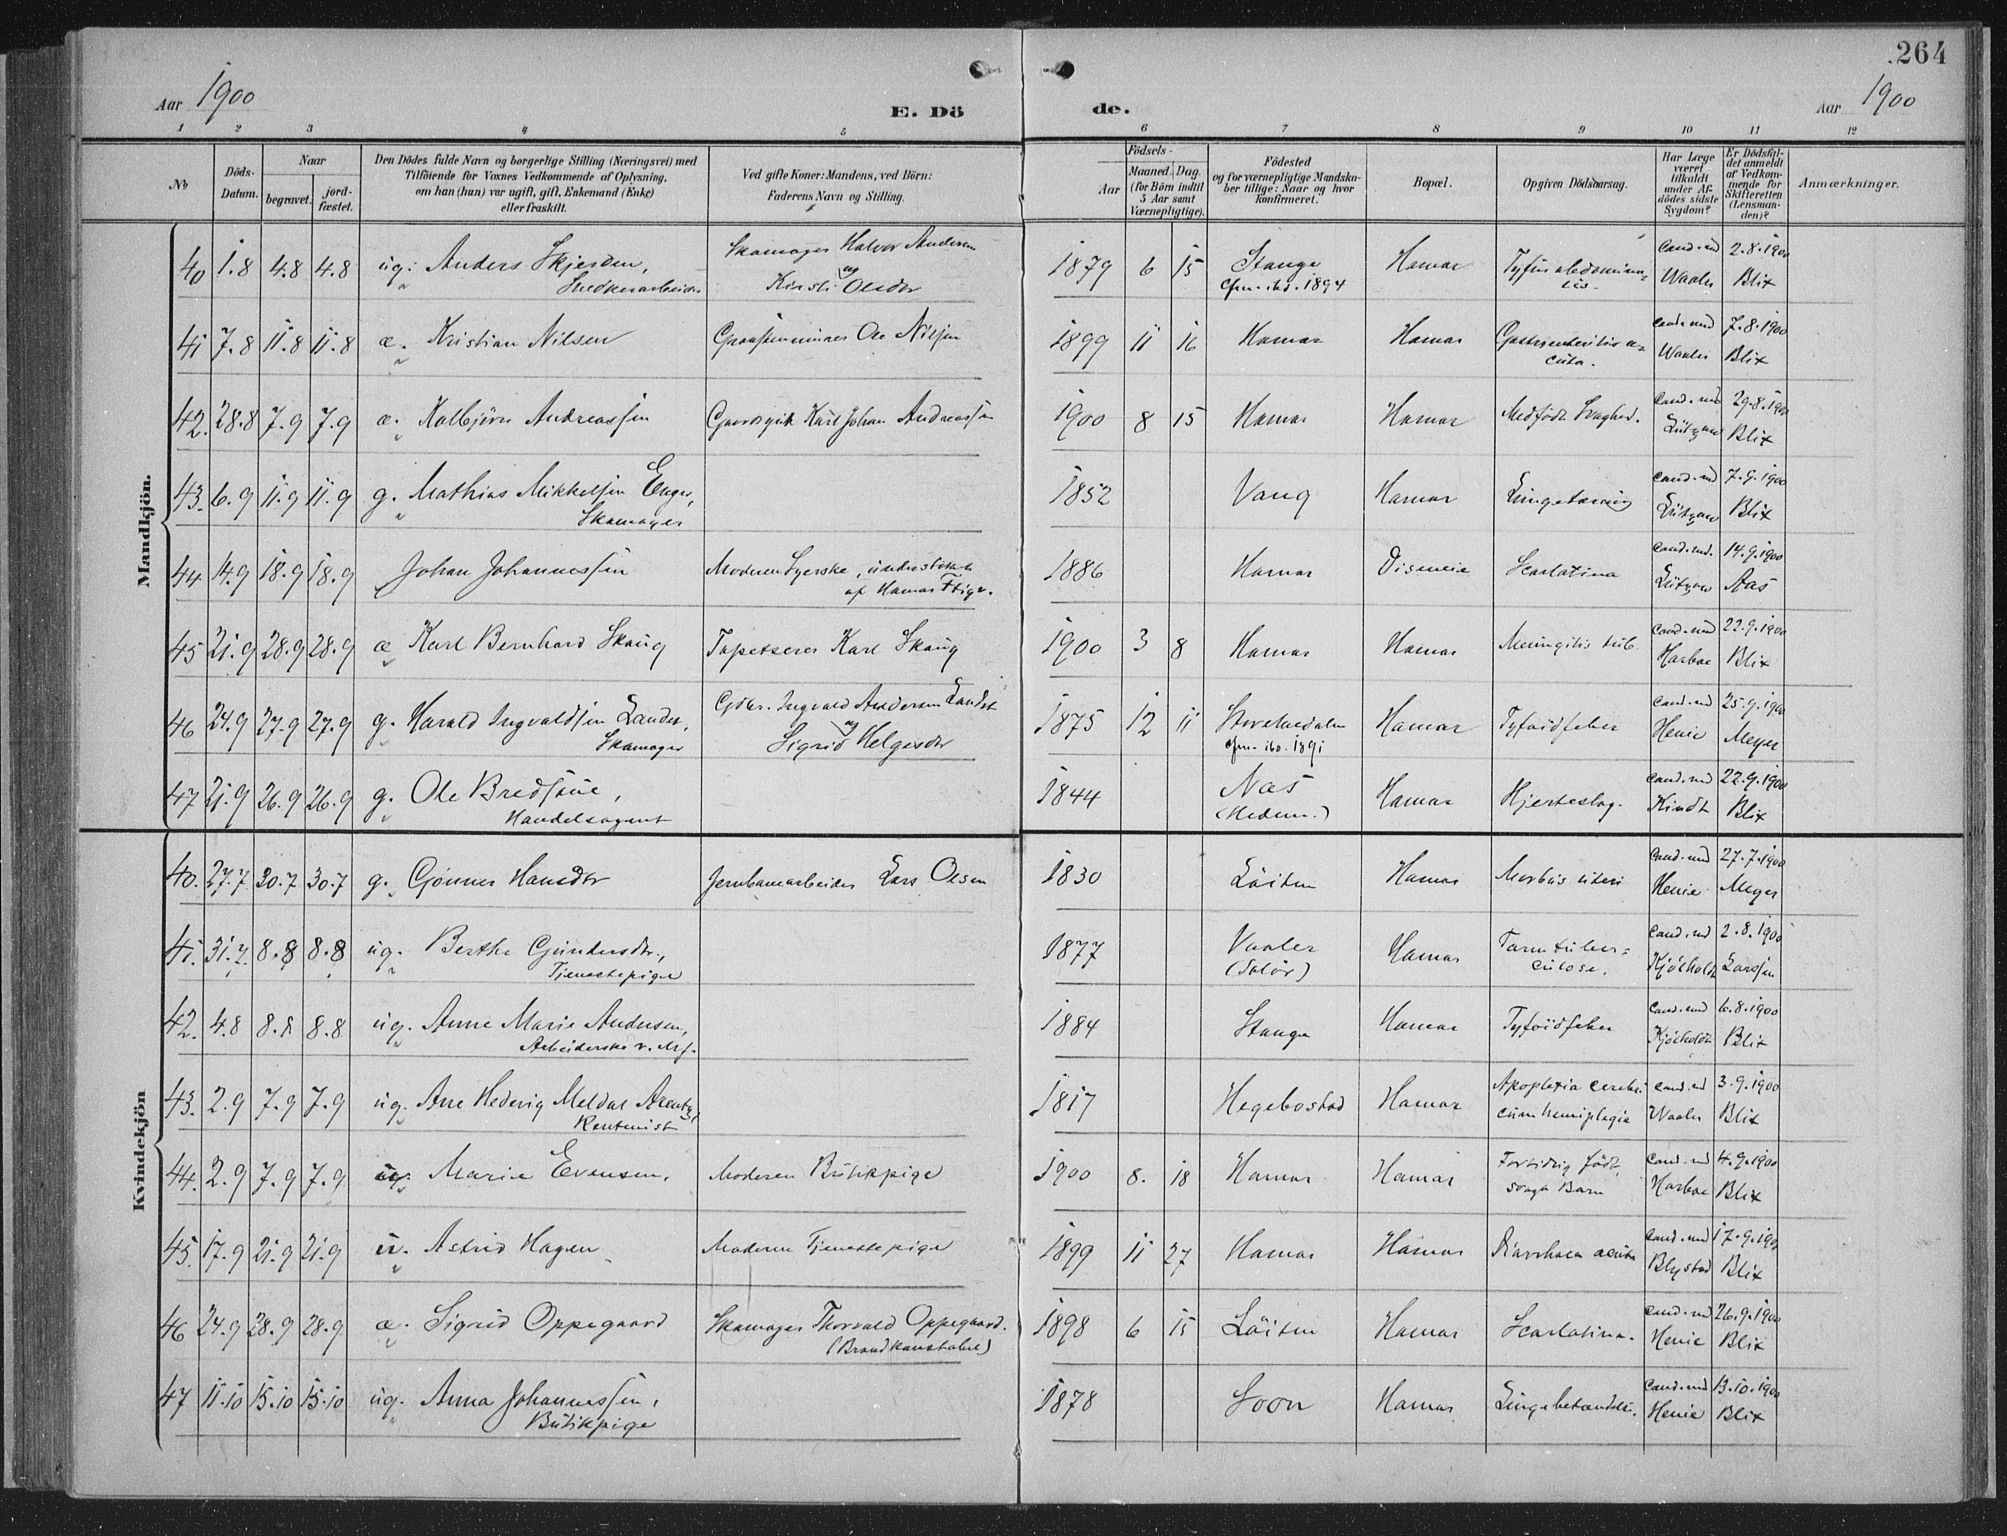 264
Aar 1900
E. Dö
de.
Aar 1900
1 2 3 4 5 6 7 8 9 10 11 12
No
Döds-
Datum.
Naar
begravet.
jord-
fæstet.
Den Dödes fulde Navn og borgerlige Stilling (Næringsvei) med
Tilföiende for Voxnes Vedkommende af Oplysning,
om han (hun) var ugift, gift, Enkemand (Enke)
eller fraskilt.
Ved gifte Koner: Mandens, ved Börn:
Faderens Navn og Stilling.
Födsels-
Aar
Maaned. Dag.
(for Börn indtil
5 Aar samt
Værnepligtige).
Födested
og for værnepligtige Mandska-
ber tillige: Naar og hvor
konfirmeret.
Bopæl.
Opgiven Dödsaarsag.
Har Læge
været
tilkaldt
under Af-
dödes sidste
Sygdom?
Er Dödsfal-
det anmeldt
af Vedkom-
mende for
Skifteretten
(Lensman-
den)?
Anmærkninger.
Mandkjön.
40 1.8 4.8 4.8 ug. Anders Skjerden, Skomager Halvor Andersen 1879 6 15 Stange Hamar Tyfus abdomina- Cand. md 2.8.1900
Snedkerarbeider og Kirsti Olsdtr Cfm. ibd. 1894 lis. Waaler Blix
41 7.8 11.8 11.8 æ. Kristian Nilsen Ole Nilsen 1899 11 16 Hamar Hamar Gastroenteritis a- Cand. md 7.8.1900
cuta. Waaler Blix
42. 28.8 7.9 7.9 æ. Kolbjörn Andreassen Karl Johan Andreassen 1900 8 15 Hamar Hamar Medfödt Svaghed. Cand. md 29.8.1900
Lützow Blix
43. 6.9 11.9 11.9 g. Mathias Mikkelsen Enger, 1852 Vang Hamar Lungetæring Cand. md 7.9.1900
Skomager Lützow Blix
44 14.9 18.9 18.9 Johan Johannessen Moderen Syerske, understöttet 1886 Hamar Diseneie Scarlatina Cand. md. 14.9.1900
af Hamar Ftigv. Lützow Aas
45 21.9 28.9 28.9 æ Karl Bernhard Skaug Tapetserer Karl Skaug 1900 3 8 Hamar Hamar Meningitis tub. Cand. md 22.9.1900
Harboe Blix
46 24.9 27.9 27.9 g. Harald Ingvaldsen Landet, Gdbr. Ingvald Andersen Landet 1875 12 11 Hamar Tyfoidfeber Cand. md 25.9.1900
Skomager og Sigrid Helgesdtr Cfm. ibd. 1891 Henie Meyer
47 21.9 26.9 26.9 g. Ole Bredsine, 1844 Nas Hamar Hjerteslag. Cand. md 22.9.1900
Handelsagent (Hedem.) Kindt Blix
Kvindekjön
40. 27.7 30.7 30.7 g. Gönner Hansdtr Jernbanearbeider Lars Olsen 1830 Löiten Hamar Morbus uteri Cand. md 27.7.1900
Henie Meyer
41. 31.7 8.8 8.8 ug. Berthe Gundersdtr., 1877 Vaaler Hamar Tarmtuber- Cand. md 2.8.1900
Tjenestepige (Solör) culose. Kjölholdt Larssen
42. 4.8 8.8 8.8 ug. Anne Marie Andersen, 1884 Stange Hamar Tyfoidfeber Cand. md 6.8.1900
Arbeiderske v. Kjölholdt Blix
43. 2.9 7.9 7.9 ug. Ane Hedevig Meldal Arentz, 1817 Hegebostad Hamar Apoplexia cerebri Cand. md 3.9.1900
Rentenist cum hemiplegia Waaler Blix
44. 2.9 7.9 7.9 u. Marie Evensen, Moderen Butikpige 1900 8. 18 Hamar Hamar Fortidig födt, Cand. md 4.9.1900
svagt Barn Harboe Blix
45. 17.9 21.9 21.9 u. Astrid Hagen Moderen Tjenestepige 1899 11 27 Hamar Hamar Diarrhoea acuta Cand. md 17.9.1900
Blystad Blix
46 24.9 28.9 28.9 æ. Sigrid Oppegaard Skomager Thorvald Oppegaard. 1898 6 15 Löiten Hamar Scarlatina. Cand. md 26.9.1900
(Brandkonstabel) Henie Blix
47 11.10 15.10 15.10 ug. Anna Johannessen, 1878 Soon Hamar Lungebetændelse. Cand. md 13.10.1900
Butikpige Henie Blix